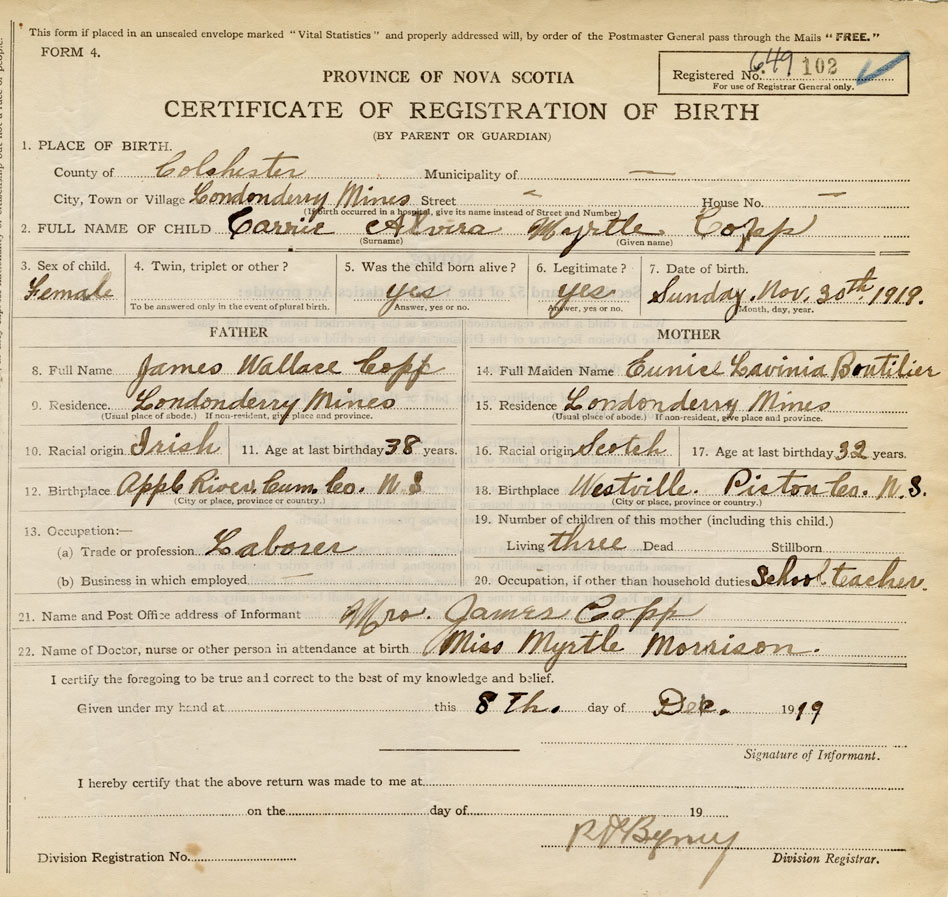 This form if placed in an unsealed envelope marked "Vital Statistics" and properly addressed will, by order of the Postmaster General pass through the Mails "FREE."
FORM 4.
PROVINCE OF NOVA SCOTIA
Registered No. 649 102
For use of Registrar General only.
CERTIFICATE OF REGISTRATION OF BIRTH
(BY PARENT OR GUARDIAN)
1. PLACE OF BIRTH.
County of Colchester Municipality of —
City, Town or Village Londonderry Mines Street — House No. —
(If birth occurred in a hospital, give its name instead of Street and Number)
2. FULL NAME OF CHILD Carrie Alvira Myrtle Copp
(Surname) (Given name)
3. Sex of child. 4. Twin, triplet or other? 5. Was the child born alive? 6. Legitimate? 7. Date of birth.
Female yes yes Sunday. Nov. 30th. 1919.
To be answered only in the event of plural birth. Answer, yes or no. Answer, yes or no. Month, day, year.
FATHER
8. Full Name James Wallace Copp
9. Residence. Londonderry Mines
(Usual place of abode.) If non-resident, give place and province.
10. Racial origin Irish 11. Age at last birthday 38 years.
12. Birthplace Apple River, Cum. Co. N. S
(City or place, province or country.)
13. Occupation:—
(a) Trade or profession Laborer
(b) Business in which employed —
MOTHER
14. Full Maiden Name Eunice Lavinia Boutilier
15. Residence Londonderry Mines
(Usual place of abode.) If non-resident, give place and province.
16. Racial origin Scotch 17. Age at last birthday 32 years.
18. Birthplace Westville. Pictou Co. N. S.
(City or place, province or country.)
19. Number of children of this mother (including this child.)
Living three Dead Stillborn
20. Occupation, if other than household duties School teacher.
21. Name and Post Office address of Informant Mrs. James Copp
22. Name of Doctor, nurse or other person in attendance at birth Miss Myrtle Morrison.
I certify the foregoing to be true and correct to the best of my knowledge and belief.
Given under my hand at this 8Th. day of Dec. 1919
Signature of Informant.
I hereby certify that the above return was made to me at
on the day of 19
Division Registration No. Division Registrar.